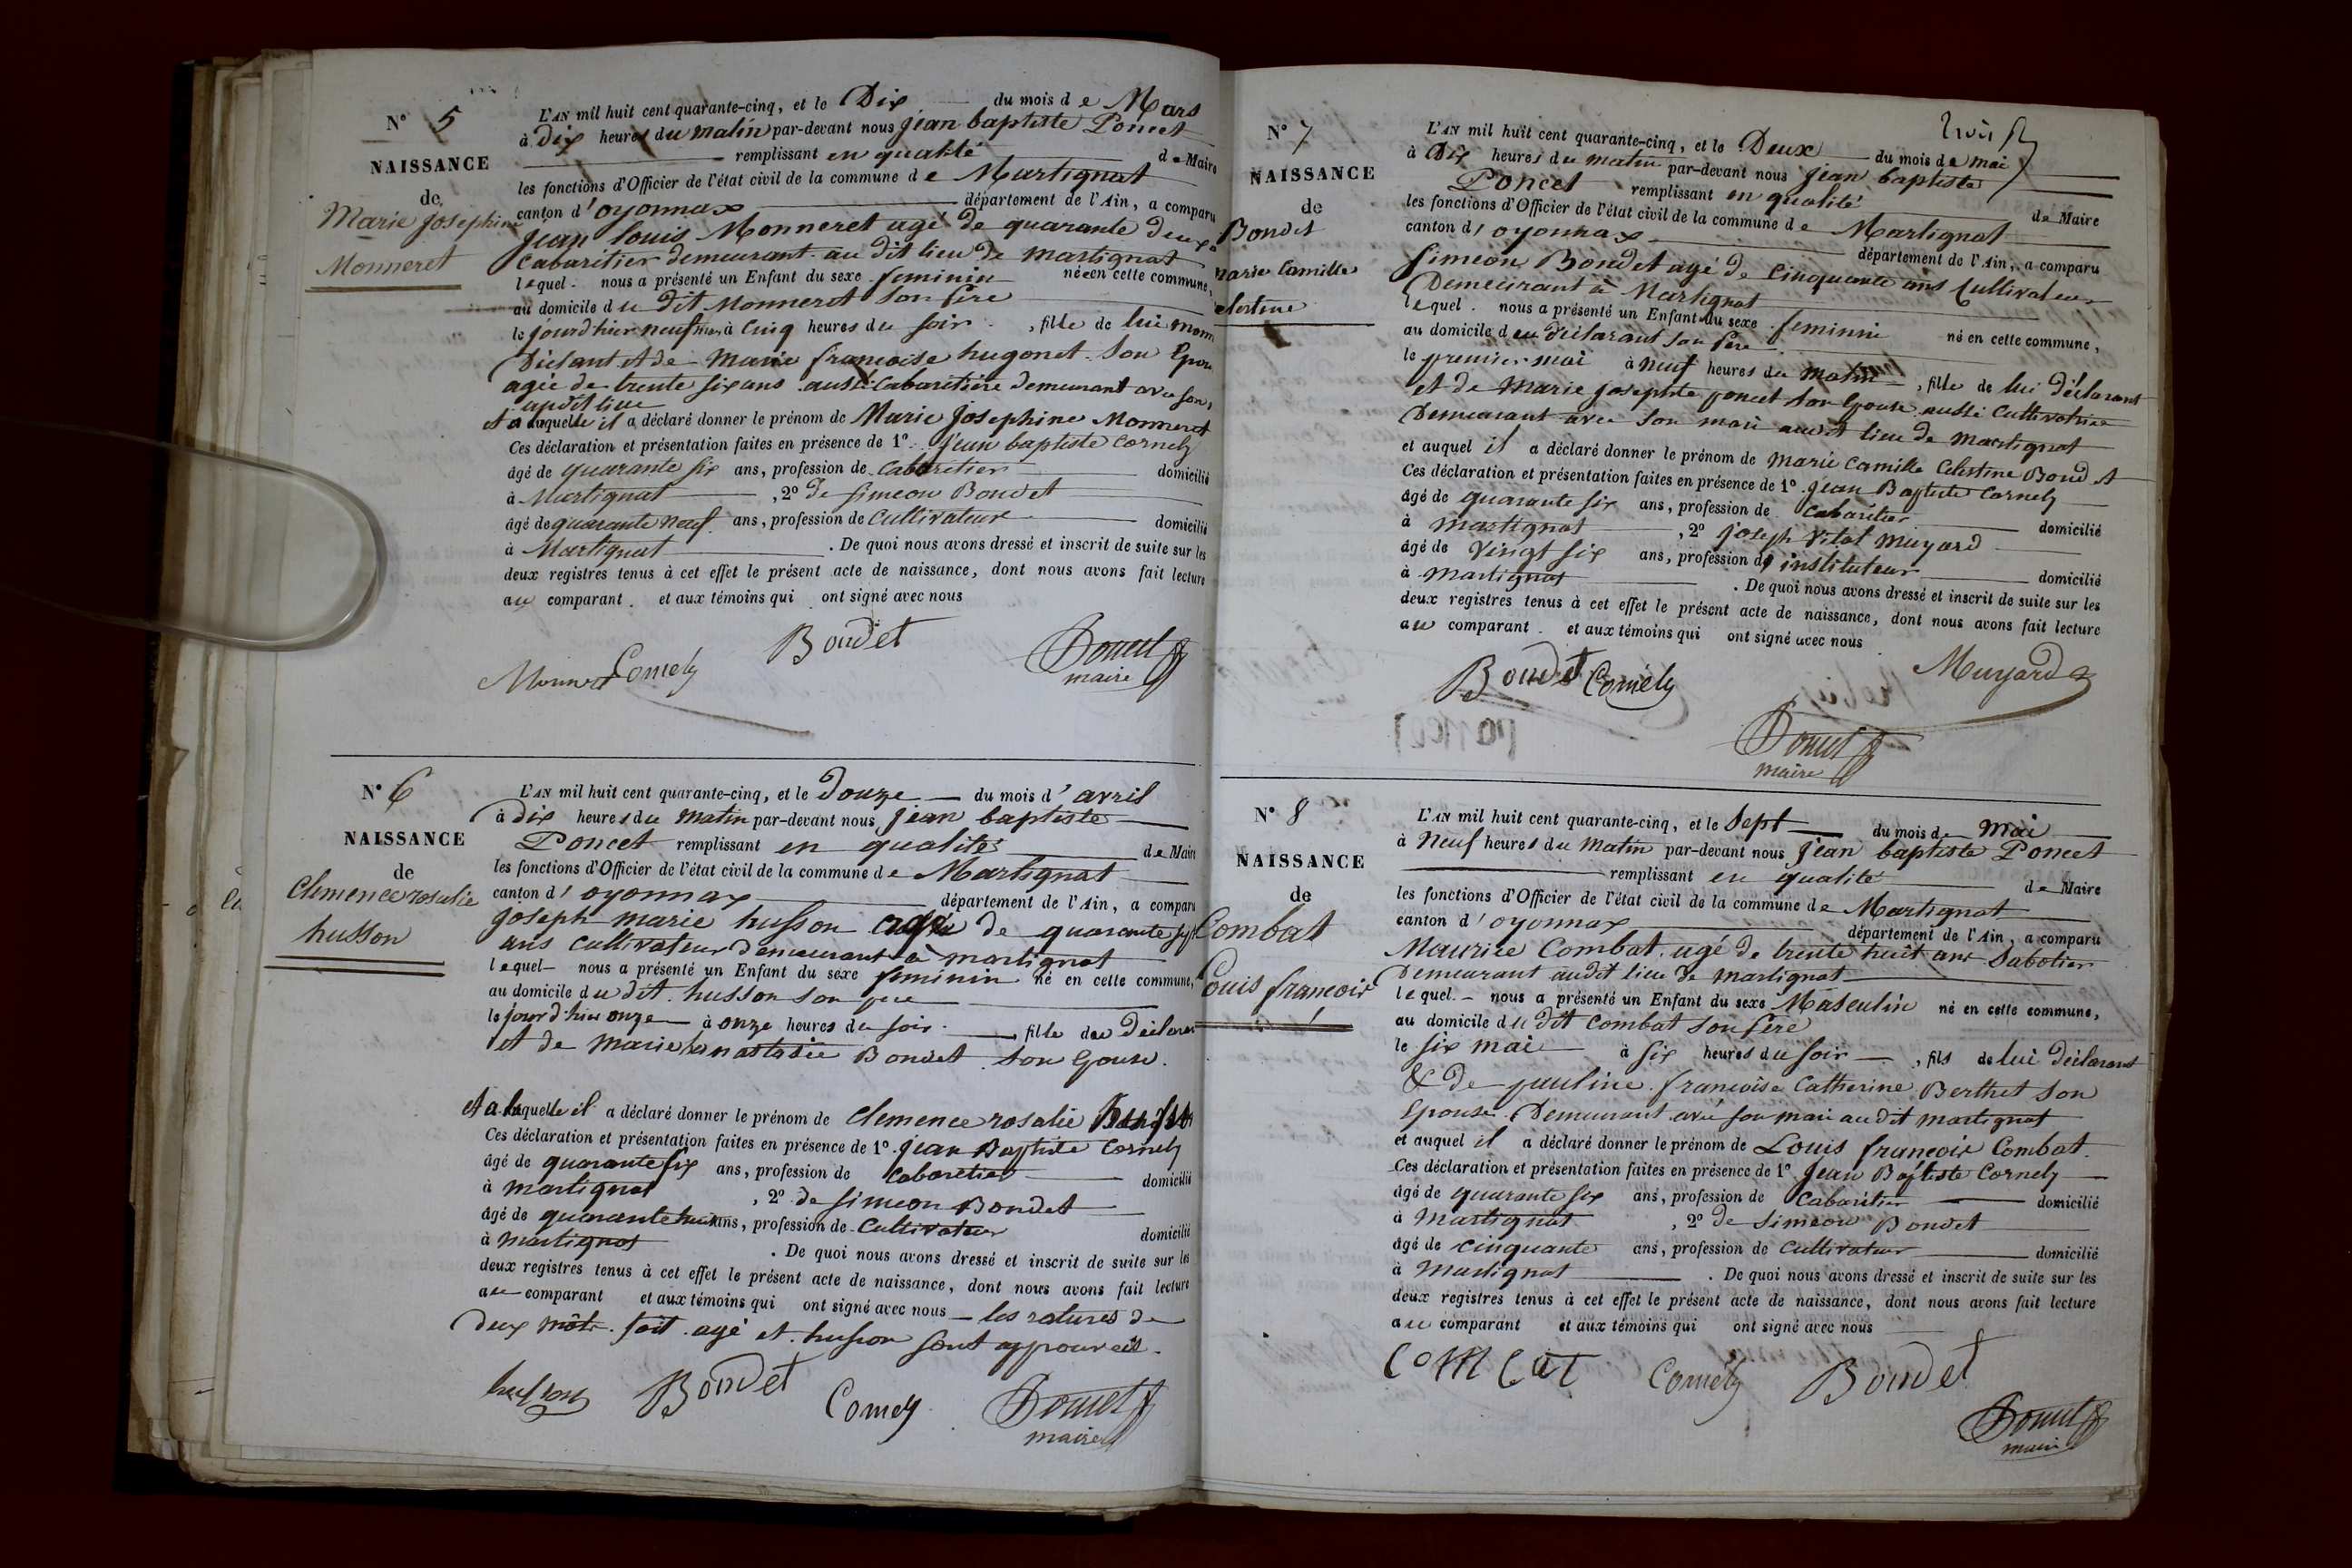 N° 5
NAISSANCE
de
Marie Josephine
Monneret
L'AN mil huit cent quarante-cinq, et le Dix du mois de Mars
à dix heures du matin par-devant nous jean baptiste Poncet
remplissant en qualité de Maire
les fonctions d'Officier de l'état civil de la commune de Martignat
canton d'oyonnax département de l'Ain, a comparu
jean louis Monneret agé de quarante deux
cabaritier demeurant au dit lieu de martignat
lequel nous a présenté un Enfant du sexe feminin né en cette commune,
au domicile du dit Monneret son père
le jourd'hier neuf mars à cinq heures du soir, fille de lui
Déclarant et de Marie francoise hugonet son Epou
agée de trente six ans aussi cabaritière demeurant avec son
audit lieu
et a laquelle il a déclaré donner le prénom de Marie Josephine Monneret
Ces déclaration et présentation faites en présence de 1°. Jean baptiste Cornely
âgé de quarante six ans, profession de cabaretier domicilié
à Martignat, 2° de simeon Bondet
âgé de quarante neuf ans, profession de Cultivateur domicilié
à Martignat. De quoi nous avons dressé et inscrit de suite sur les
deux registres tenus à cet effet le présent acte de naissance, dont nous avons fait lecture
au comparant et aux témoins qui ont signé avec nous
Monneret Cornely Bondet Poncet
maire
N° 6
NAISSANCE
de
Clemence rosalie
husson
L'AN mil huit cent quarante-cinq, et le Douze du mois d'avril
à dix heures du matin par-devant nous jean baptiste
Poncet remplissant en qualité de Maire
les fonctions d'Officier de l'état civil de la commune de Martignat
canton d'oyonnax département de l'Ain, a comparu
joseph marie husson agé de quarante sept
ans cultivateur demeurant à martignat
lequel nous a présenté un Enfant du sexe feminin né en cette commune,
au domicile du dit husson son père
le jourd'hier onze à onze heures du soir, fille du Déclarant
et de marie anastasie Bondet son Epouse.
et a laquelle il a déclaré donner le prénom de Clemence rosalie husson
Ces déclaration et présentation faites en présence de 1°. jean Baptiste Cornely
âgé de quarante six ans, profession de Cabaretier domicilié
à martignat, 2° de simeon Bondet
âgé de quarante neuf ans, profession de Cultivateur domicilié
à martignat. De quoi nous avons dressé et inscrit de suite sur les
deux registres tenus à cet effet le présent acte de naissance, dont nous avons fait lecture
au comparant et aux témoins qui ont signé avec nous les ratures de
deux mots soit agé et husson sont approuvés.
husson Bondet Cornely Poncet
maire
N° 7
NAISSANCE
de
Bondet
marie Camille
celestine
L'AN mil huit cent quarante-cinq, et le Deux du mois de mai
à Dix heures du matin par-devant nous jean baptiste
Poncet remplissant en qualité de Maire
les fonctions d'Officier de l'état civil de la commune de Martignat
canton d'oyonnax département de l'Ain, a comparu
simeon Bondet agé de cinquante ans Cultivateur
Demeurant à Martignat
lequel nous a présenté un Enfant du sexe feminin né en cette commune,
au domicile du déclarant son père
le premier mai à neuf heures du matin, fille de lui déclarant
et de marie josephte poncet son Epouse aussi cultivatrice
Demeurant avec son mari audit lieu de martignat
et auquel il a déclaré donner le prénom de marie Camille Celestine Bondet
Ces déclaration et présentation faites en présence de 1°. jean Baptiste Cornely
âgé de quarante six ans, profession de Cabaritier domicilié
à martignat, 2° joseph vital muyard
âgé de vingt six ans, profession d'instituteur domicilié
à martignat. De quoi nous avons dressé et inscrit de suite sur les
deux registres tenus à cet effet le présent acte de naissance, dont nous avons fait lecture
au comparant et aux témoins qui ont signé avec nous
Bondet Cornely Muyard
Poncet
maire
N° 8
NAISSANCE
de
Combat
Louis françois
L'AN mil huit cent quarante-cinq, et le Sept du mois de mai
à Neuf heures du matin par-devant nous jean baptiste Poncet
remplissant en qualité de Maire
les fonctions d'Officier de l'état civil de la commune de Martignat
canton d'oyonnax département de l'Ain, a comparu
Maurice Combat agé de trente huit ans Sabotier
Demeurant audit lieu de martignat
lequel nous a présenté un Enfant du sexe Masculin né en cette commune,
au domicile du dit Combat son père
le six mai à six heures du soir, fils de lui déclarant
& de pauline françoise Catherine Berthet son
Epouse Demeurant avec son mari audit martignat
et auquel il a déclaré donner le prénom de Louis françois Combat
Ces déclaration et présentation faites en présence de 1°. Jean Baptiste Cornely
âgé de quarante six ans, profession de Cabaritier domicilié
à Martignat, 2° de Simeon Bondet
âgé de cinquante ans, profession de Cultivateur domicilié
à Martignat. De quoi nous avons dressé et inscrit de suite sur les
deux registres tenus à cet effet le présent acte de naissance, dont nous avons fait lecture
au comparant et aux témoins qui ont signé avec nous
Combat Cornely Bondet
Poncet
maire